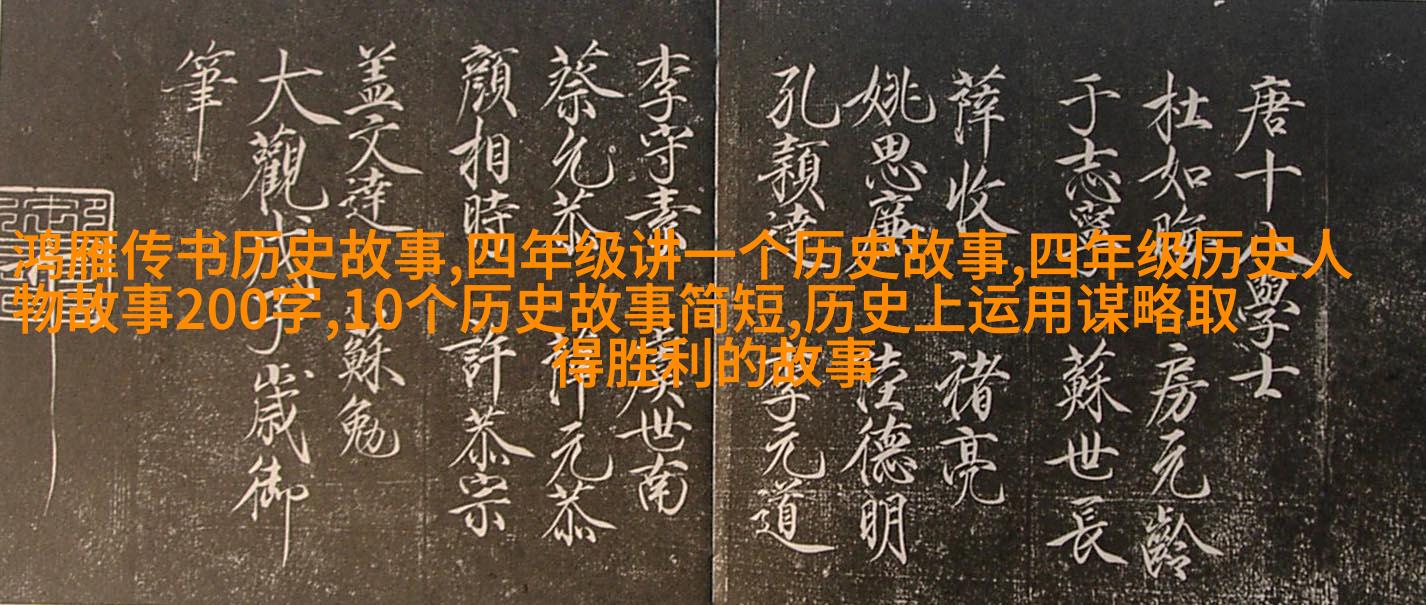 唐十八學士
杜如晦 房元齡
于志寧 蘇世長
薛收 褚亮
姚思廉 陸德明
孔穎達 李元道
李守素 虞世南
蔡允恭 薛元恭
顏相時 許恭宗
盖文達 蘇勉
大觀戊子歲御
筆
鸿雁传书历史故事,四年级讲一个历史故事,四年级历史人
物故事200字,10个历史故事简短,历史上运用谋略取
得胜利的故事